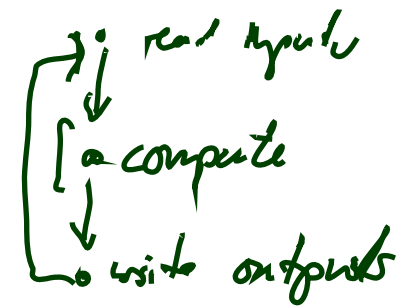 read inputs
compute
write outputs